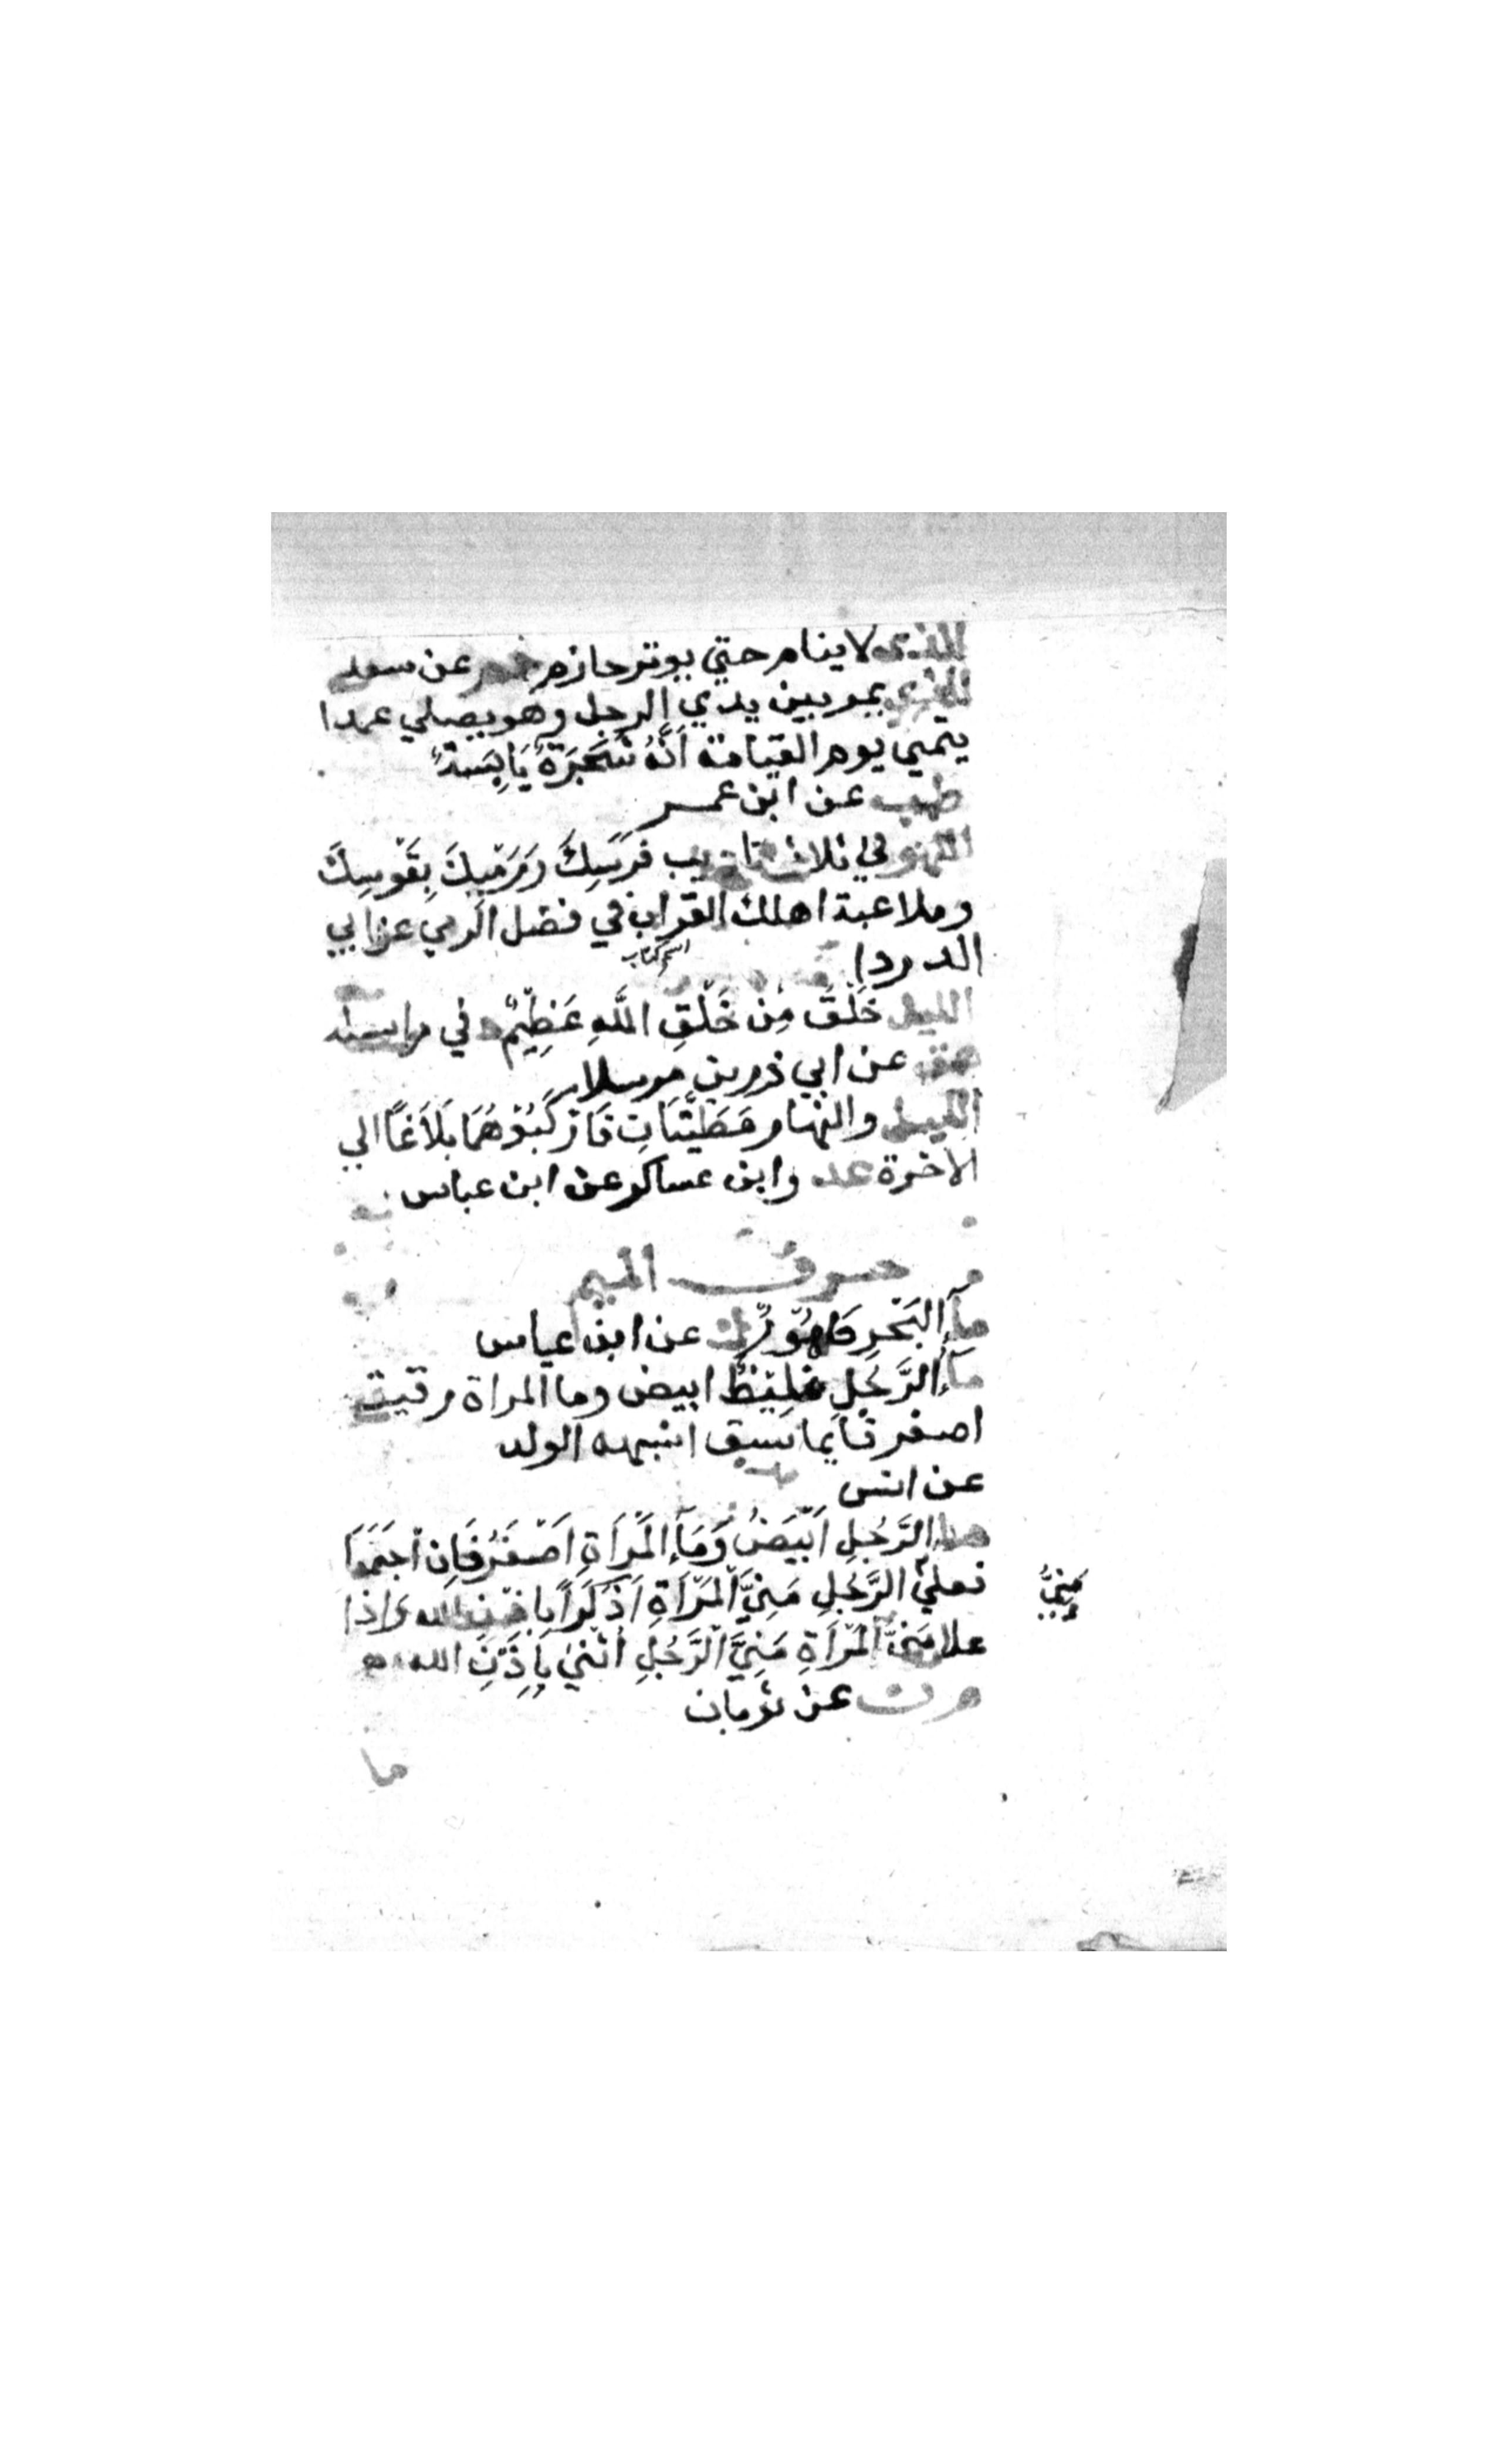 الذي لا ينام حتي يوتر حازم حم عن سعد
الذي يمر بين يدي الرجل وهو يصلي عمدا
يتمني يوم القيامة اَنَّهُ شَجَرَةٌ يَابِسَةٌ
طب عن ابن عمر
اللهو في ثلاث تاديب فَرَسِكَ وَرَمْيِكَ بِقَوْسِكَ
وملاعبة اهلك القراب في فضل الرمي عن ابي
اسم كتاب
الدردا
الليل خَلْقٌ مِنْ خَلْقِ اللَّهِ عَظِيْمٌ د في مراسيله
هق عن ابي رزين مرسلا
الليل والنهار مَطِيَّتَانِ فَارْكَبُوْهُمَا بَلَاغًا الي
الاخرة عد وابن عساكر عن ابن عباس
حرف الميم
مَآءُ البَحْرِ طَهُوْرٌ ك عن ابن عباس
مَآءُ الرَّجُلِ غَلِيْظٌ ابيض وما المراة رقيق
اصفر فايما سبق اشبهه الولد
عن انس
مآء الرَّجُلِ اَبْيَضُ وَمَآءُ المَرْاَةِ اَصْفَرُ فَاِنْ اجْتَمَعَا
فعلي الرَّجُلِ مَنِيَّ الْمَرْاَةِ اَذْكَرَا بِاِذْنِ الله وَاِذَا
مَنِيُّ
علا مَنِيُّ الْمَرْاَةِ مَنِيَّ الْرَّجُلِ اَنْثَي بِاِذْنِ الله
م ن عن ثوبان
ما